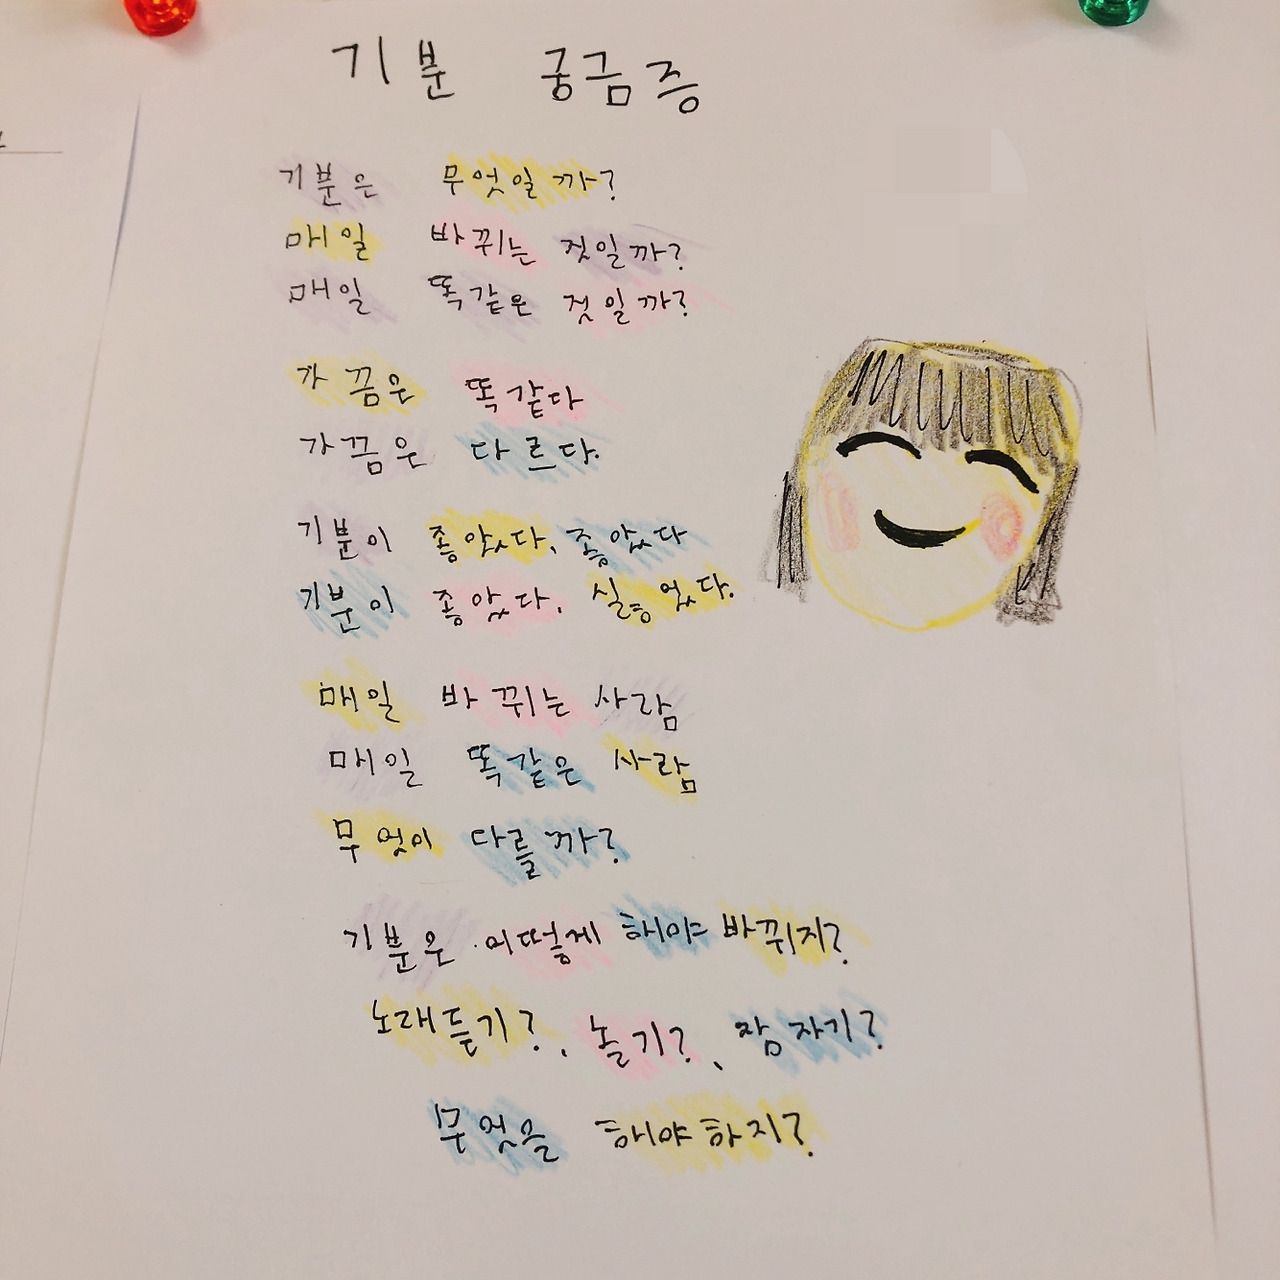 기분 궁금증
기분은 무엇일까?
매일 바뀌는 것일까?
매일 똑같은 것일까?
가끔은 똑같다
가끔은 다르다.
기분이 좋았다, 좋았다
기분이 좋았다, 실ㅎ었다.
매일 바뀌는 사람
매일 똑같은 사람
무엇이 다를까?
기분은 어떻게 해야 바뀌지?
노래듣기?, 놀기?, 잠자기?
무엇을 해야하지?